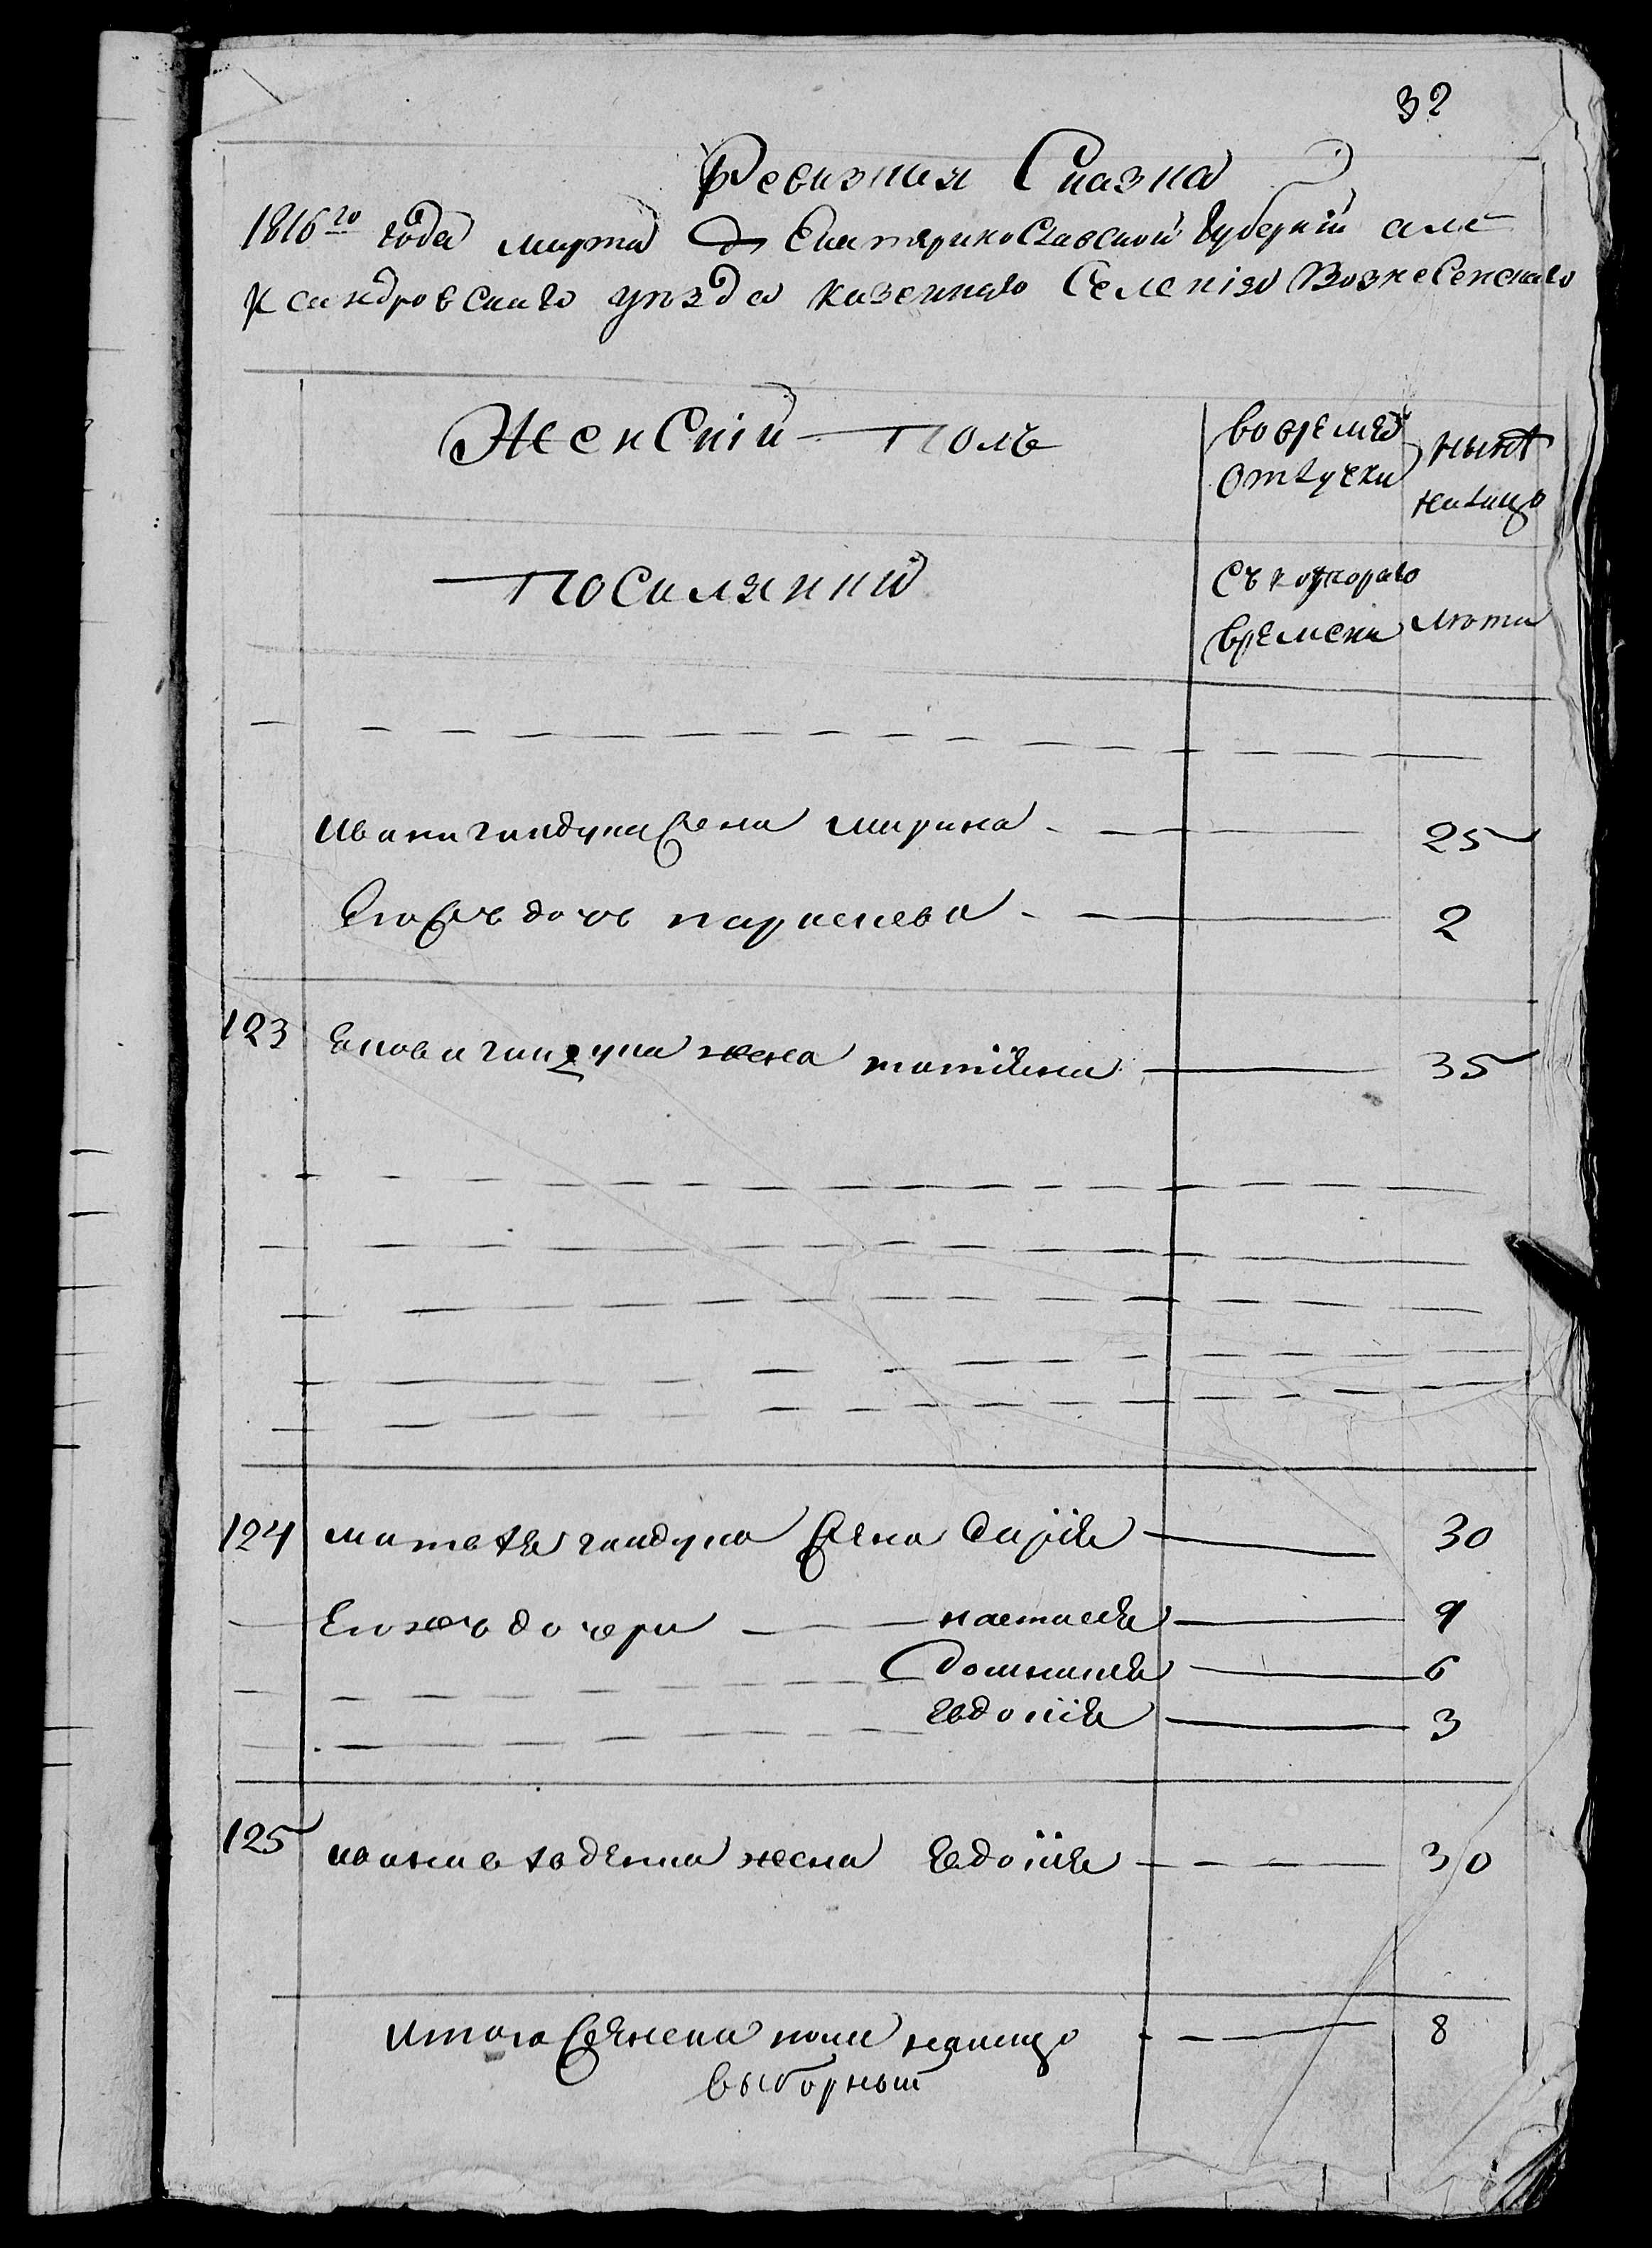 32
Ревизкая Сказка
1816го года марта Екатериnославской Губернiи алe
ксандровскаго уѣзда казеннаго Селенiя Вознесенскаго
Женскiй Полъ
во время отлучки
нынѣ на лицо
Поселянки
съ котораго времени
лѣта
Ивана гайдука жена марина 25
Его жъ дочь параскева 2
123 Якова гайдука жена татiяна 35
124 матвѣя гайдука жена дарiя 30
Его жъ дочери настасiя 9
домникiя 6
Евдокiя 3
125 жена Евдокiя 30
Итого женска пола налицо 8
выборный